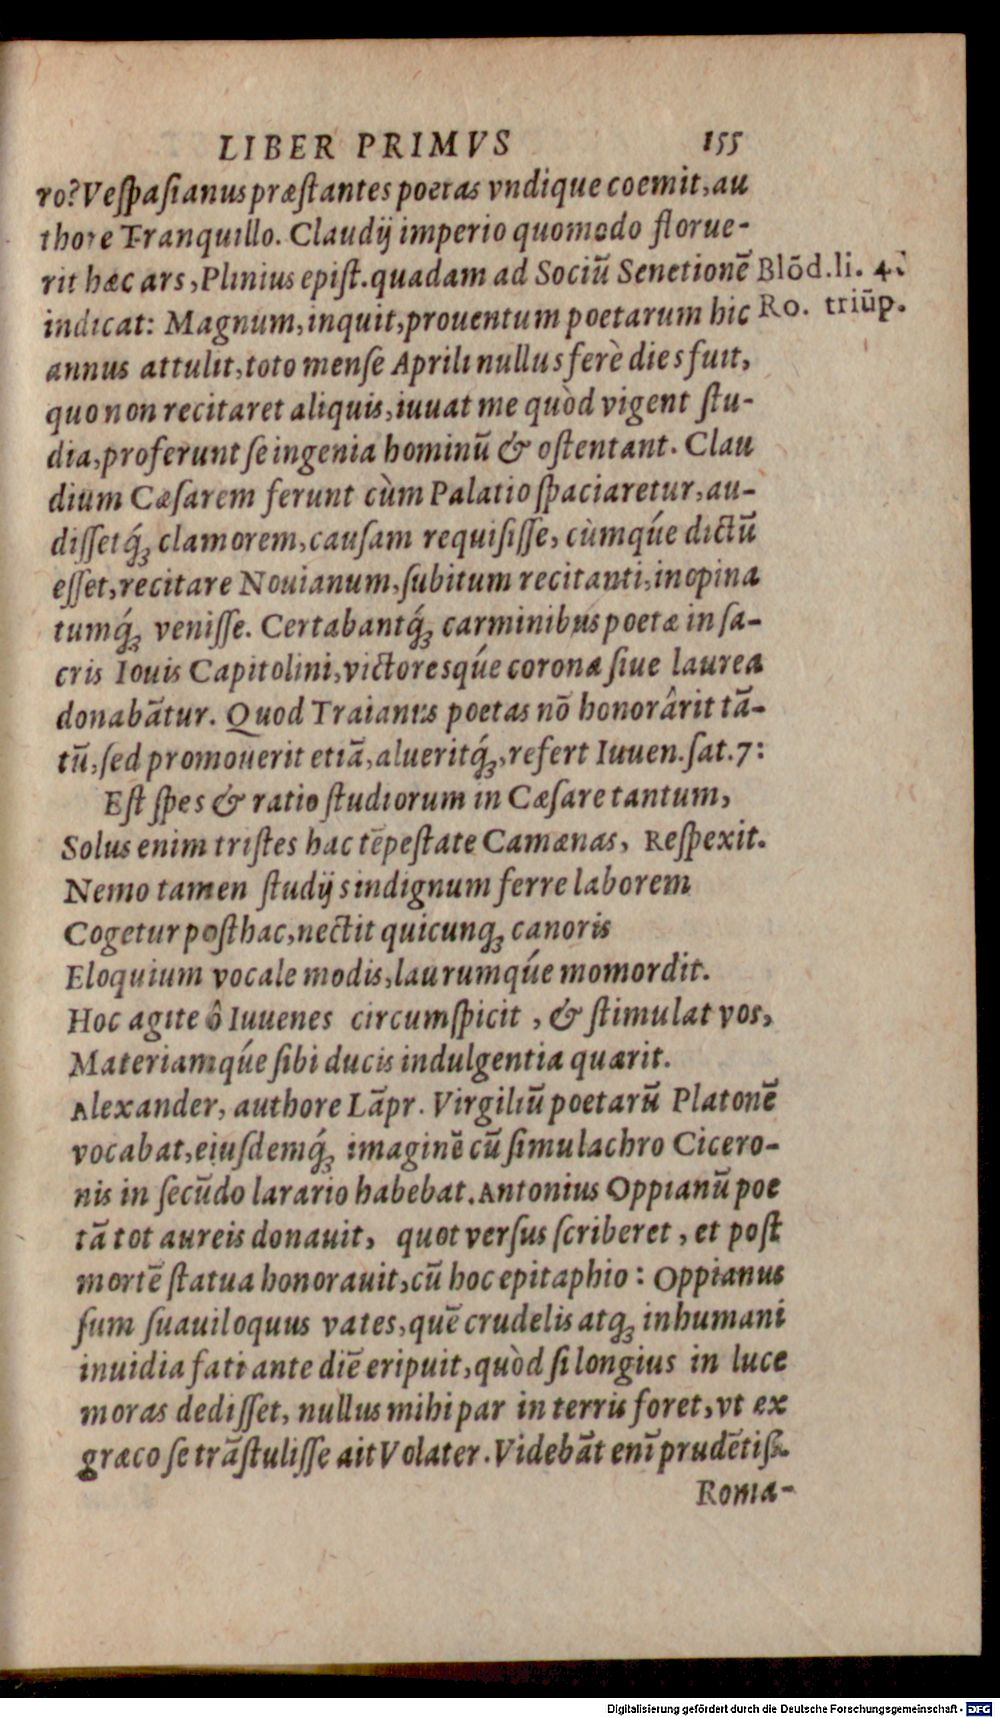 LIBER PRIMVS 155
ro? Veſpaſianus præſtantes poetas vndique coemit, au
thore Tranquillo. Claudij imperio quomodo florue-
rit hæc ars, Plinius epiſt. quadam ad Sociũ Senetionẽ
Blõd. li. 4.
indicat: Magnum, inquit, prouentum poetarum hic
Ro. triũp.
annus attulit, toto menſe Aprili nullus ferè dies fuit,
quo non recitaret aliquis, iuuat me quòd vigent ſtu-
dia, proferunt ſe ingenia hominũ & oſtentant. Clau
dium Cæſarem ferunt cùm Palatio ſpaciaretur, au-
diſſetq́ꝫ clamorem, cauſam requiſiſſe, cùmqúe dictũ
eſſet, recitare Nouianum, ſubitum recitanti, inopina
tumq́ꝫ veniſſe. Certabantq́ꝫ carminibus poetæ in ſa-
cris Iouis Capitolini, victoresqúe corona ſiue laurea
donabãtur. Quod Traianus poetas nõ honorârit tã-
tũ, ſed promouerit etiã, alueritq́ꝫ, refert Iuuen. ſat. 7:
Eſt ſpes & ratio ſtudiorum in Cæſare tantum,
Solus enim triſtes hac tẽpeſtate Camænas, Reſpexit.
Nemo tamen ſtudijs indignum ferre laborem
Cogetur poſthac, nectit quicunqꝫ canoris
Eloquium vocale modis, laurumqúe momordit.
Hoc agite ô Iuuenes circumſpicit, & ſtimulat vos,
Materiamqúe ſibi ducis indulgentia quærit.
Alexander, authore Lãpr. Virgiliũ poetarũ Platonẽ
vocabat, eiuſdemq́ꝫ imaginẽ cũ ſimulachro Cicero-
nis in ſecũdo larario habebat. Antonius Oppianũ poe
tã tot aureis donauit, quot verſus ſcriberet, et poſt
mortẽ ſtatua honorauit, cũ hoc epitaphio: Oppianus
ſum ſuauiloquus vates, quẽ crudelis atqꝫ inhumani
inuidia fati ante diẽ eripuit, quòd ſi longius in luce
moras dediſſet, nullus mihi par in terris foret, vt ex
græco ſe trãſtuliſſe ait Volater. Videbãt enĩ prudẽtiſs.
Roma-
Digitalisierung gefördert durch die Deutsche Forschungsgemeinschaft - DFG